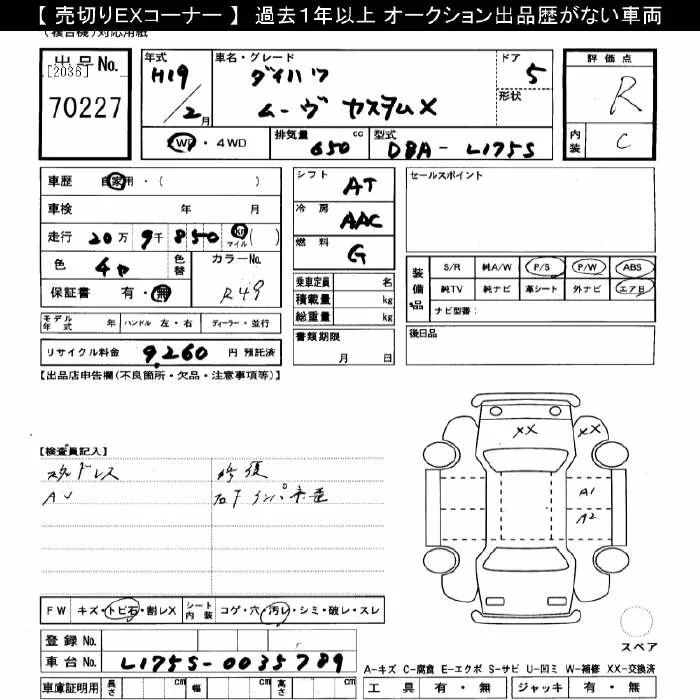 【 売切りEXコーナー 】 過去1年以上 オークション出品歴がない車両
(複合機)対応用紙
出品No.
[2036]
70227
年式
H19
/2月
車名・グレード
ダイハツ
ムーヴ カスタムX
ドア
5
形状
2WD ・ 4WD
排気量 cc
650
型式
DBA - L175S
評価点
R
内装
C
車歴 自家用・( )
車検 年 月
走行 20万 9千 850 km マイル ( )
色
色替
カラーNo.
R49
保証書 有・無
モデル年式 年 ハンドル 左・右 ディーラー・並行
リサイクル料金 9,260 円 預託済
シフト
AT
冷房
AAC
燃料
G
乗車定員 名
積載量 kg
総重量 kg
書類期限
月 日
セールスポイント
装備品
S/R 純A/W P/S P/W ABS
純TV 純ナビ 革シート 外ナビ エアB
ナビ型番:
後日品
【出品店申告欄(不良箇所・欠品・注意事項等)】
【検査員記入】
修復
XX XX
A1
A2
FW キズ・トビ石・割レX
シート内装 コゲ・穴・汚レ・シミ・破レ・スレ
登録No.
車台No. L175S-0035789
車庫証明用 長さ cm 幅 cm 高さ cm
スペア
A-キズ C-腐食 E-エクボ S-サビ U-凹ミ W-補修 XX-交換済
工具 有・無 ジャッキ 有・無